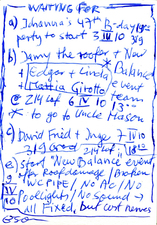 WAITING FOR
a) Johanna's 47th B-day
party to start 3 III 10 319
b) Danny the roofer + New
+ Edgar + Linda * Balance
+ Mattia Girotto event team
@ 214 Lof 6 IV 10 13:00
* to go to Uncle Mason
c) David Fried + Inge 7 IV 10
319 Good 214 Lof
e) start "New Balance" event
after Roof damage / Broken
WC PIPE / No AC / No
Poollight / No Sound →
All Fixed, but cost nerves